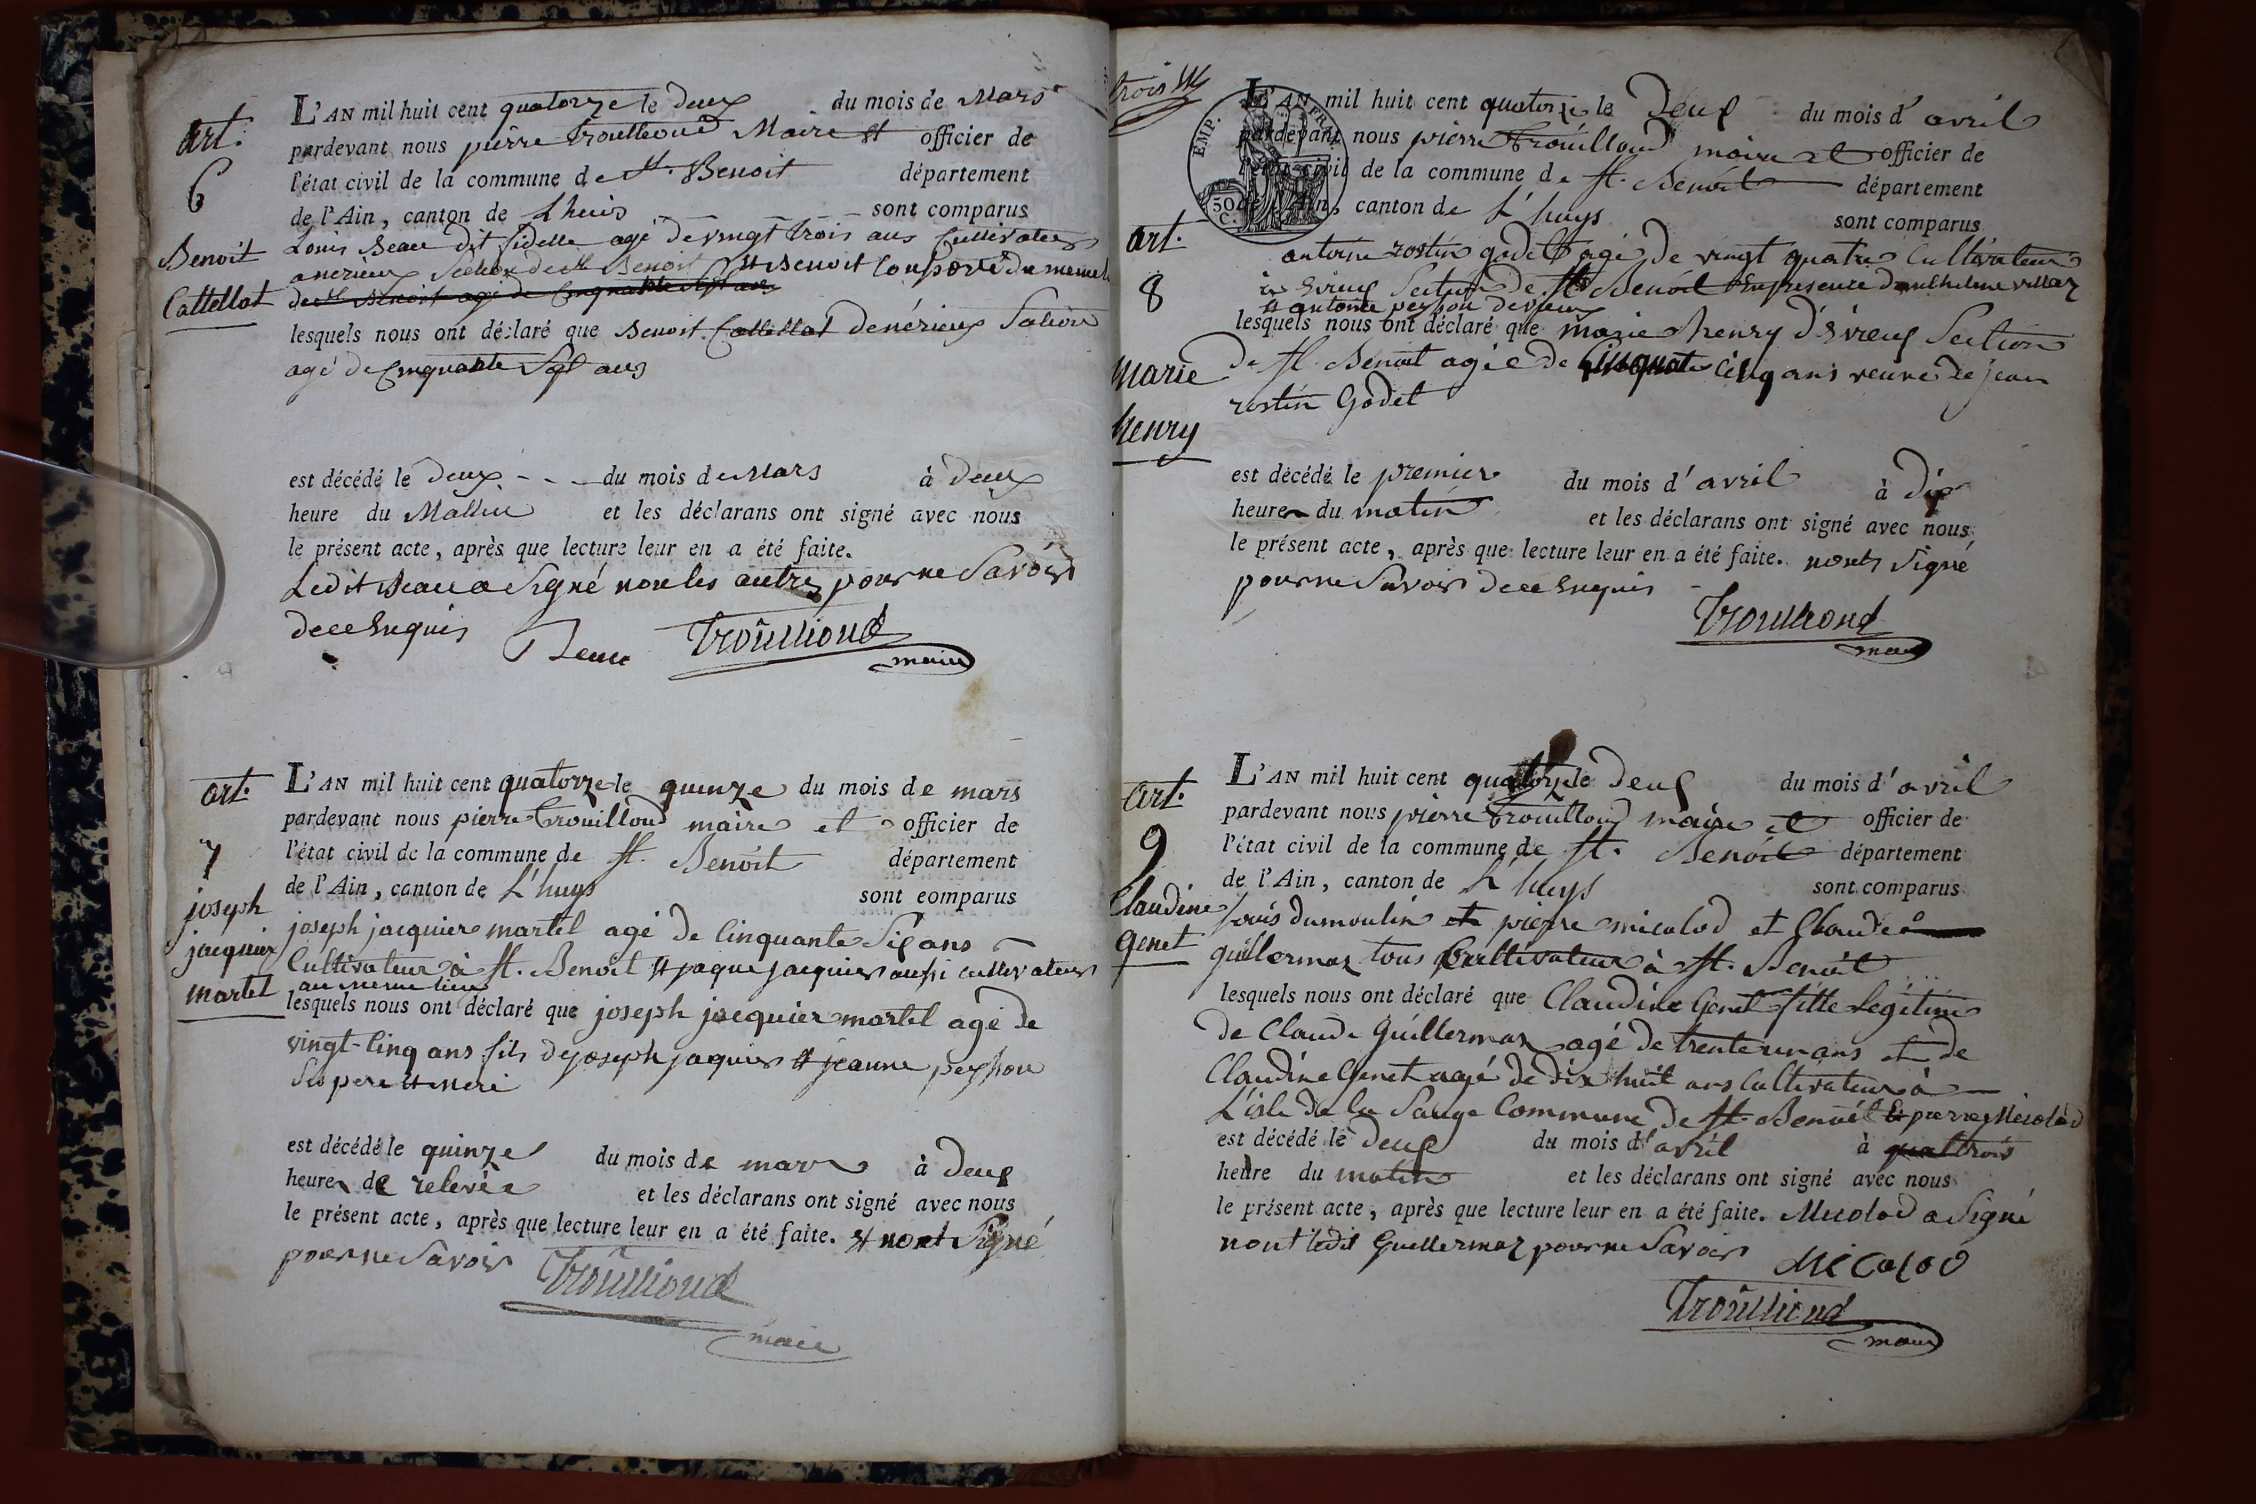 art.
6
Benoit
Cattellat
L'AN mil huit cent quatorze le deux du mois de Mars
pardevant nous pierre trouilloud Maire et officier de
l'état civil de la commune de St. Benoit département
de l'Ain, canton de Lhuis sont comparus
Louis Beau dit fidelle agé de vingt trois ans Cultivateur
a nerieux Section de St Benoit et Benoit du meme
de St Benoit agé de Cinquante Sept ans
lesquels nous ont déclaré que Benoit Cattellat denérieux Section
agé de Cinquante Sept ans
est décédé le deux du mois de Mars à deux
heure du Mattin et les déclarans ont signé avec nous
le présent acte, après que lecture leur en a été faite.
Ledit Beau a Signé non les autres pour ne Savoir
de ce Enquis
Beau Trouilloud
maire
art.
7
joseph
jacquier
martel
L'AN mil huit cent quatorze le quinze du mois de mars
pardevant nous pierre Trouilloud maire et officier de
l'état civil de la commune de St. Benoit département
de l'Ain, canton de L'huys sont comparus
joseph jacquier martel agé de Cinquante Six ans
Cultivateur à St. Benoit et jaque jacquier aussi cultivateur
au meme lieu
lesquels nous ont déclaré que joseph jacquier martel agé de
vingt-Cinq ans fils de joseph jaquier et jeanne peysson
Ses pere et mere
est décédé le quinze du mois de mars à deux
heures de relevée et les déclarans ont signé avec nous
le présent acte, après que lecture leur en a été faite. et n'ont Signé
pour ne Savoir
Trouilloud
maire
trois
EMP. FR
50
C.
art.
8
marie
henry
L'AN mil huit cent quatorze le Deux du mois d'avril
pardevant nous pierre trouilloud maire et officier de
l'état civil de la commune de St. Benoit département
de l'Ain, canton de L'huys sont comparus
antoine rostin godet agé de vingt quatre Cultivateur
Evieux Section de St Benoit En presence
et antoine peysson
lesquels nous ont déclaré que marie henry d'Evieux Section
de St. Benoit agée de Cinquante Cinq ans veuve de jean
rostin Godet
est décédé le premier du mois d'avril à dix
heures du matin et les déclarans ont signé avec nous
le présent acte, après que lecture leur en a été faite. n'onts Signé
pour ne Savoir de ce Enquis
Trouilloud
maire
art.
9
Claudine
genet
L'AN mil huit cent quatorze le deux du mois d'avril
pardevant nous pierre trouilloud maire et officier de
l'état civil de la commune de St. Benoit département
de l'Ain, canton de L'huys sont comparus
Louis dumoulin et pierre micolod et Claude
guillermaz tous Cultivateur à St. Benoit
lesquels nous ont déclaré que Claudine Genet fille Légitime
de Claude Guillermaz agé de trente un ans et de
Claudine Genet agé de dix huit ans Cultivateur à
L'isle de la Sauge Commune de St. Benoit Et pierre Micolod
est décédé le deux du mois d'avril à trois
heure du matin et les déclarans ont signé avec nous
le présent acte, après que lecture leur en a été faite. Micolod a Signé
nont ledit Guillermaz pour ne Savoir MICOLOD
Trouilloud
maire